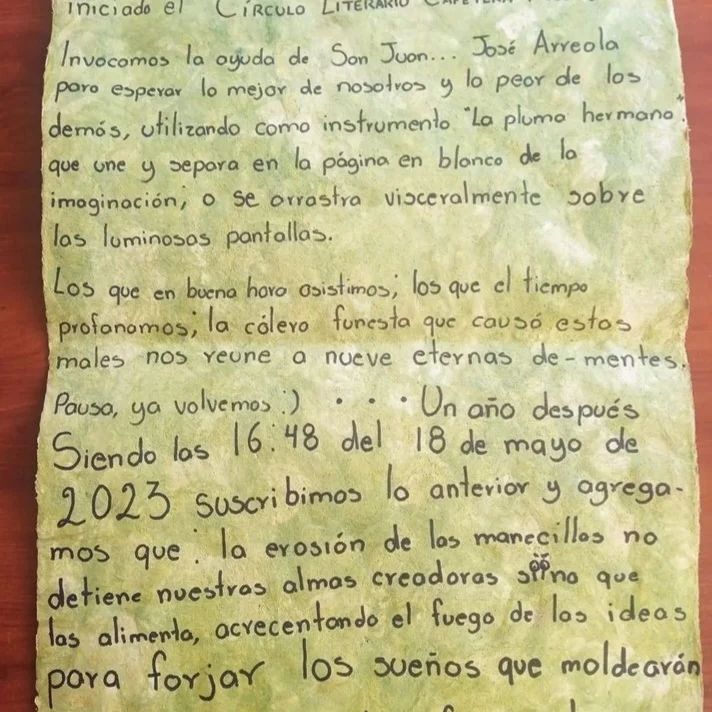 iniciado el CÍRCULO LITERARIO
Invocamos la ayuda de San Juan... José Arreola
para esperar lo mejor de nosotros y lo peor de los
demás, utilizando como instrumento "La pluma hermana",
que une y separa en la página en blanco de la
imaginación; o se arrastra visceralmente sobre
las luminosas pantallas.
Los que en buena hora asistimos; los que el tiempo
profanamos; la cólera funesta que causó estos
males nos reune a nueve eternas de-mentes.
Pausa, ya volvemos :) · · · Un año después
Siendo las 16:48 del 18 de mayo de
2023 suscribimos lo anterior y agrega-
mos que: la erosión de las manecillas no
detiene nuestras almas creadoras sino que
las alimenta, acrecentando el fuego de las ideas
para forjar los sueños que moldearán